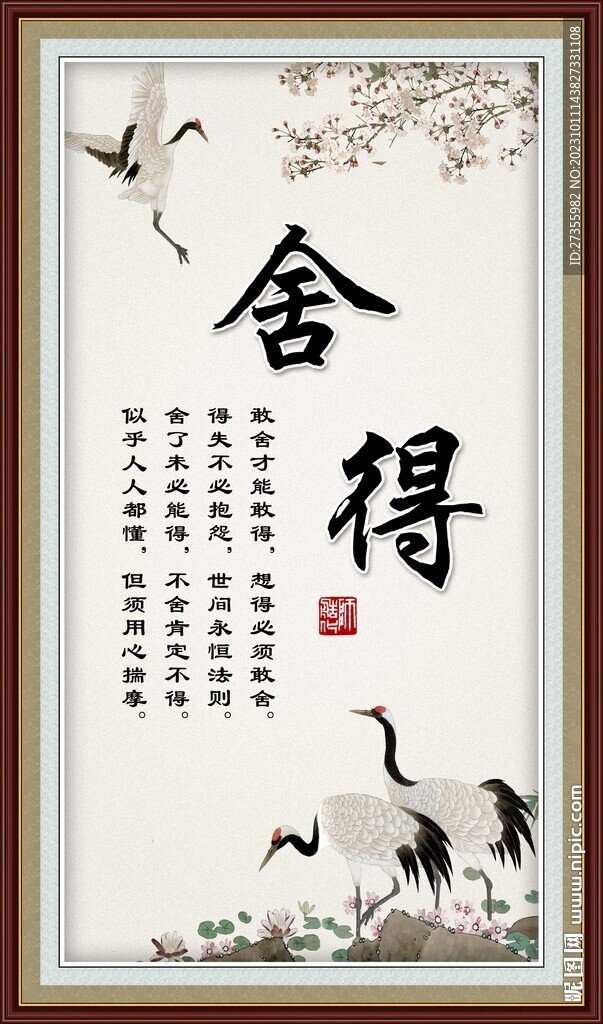 舍
得
敢舍才能敢得，想得必须敢舍。
得失不必抱怨，世间永恒法则。
舍了未必能得，不舍肯定不得。
似乎人人都懂，但须用心揣摩。
ID:27355982 NO:20231011143827331108
昵图网 www.nipic.com